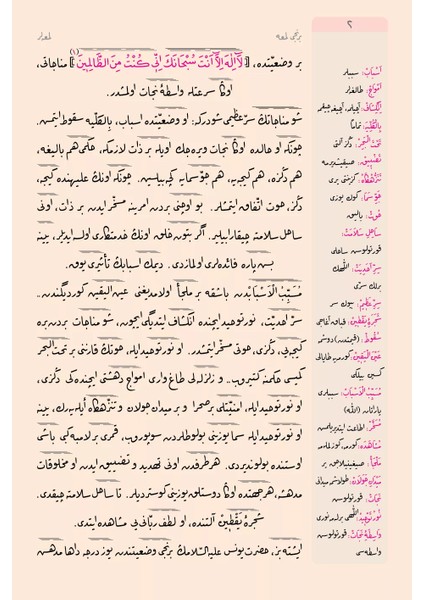 ٢
برنجی لمعه
لمعه‌لر
بر وضعیتده، ﴿لَٓا اِلٰهَ اِلَّٓا اَنْتَ سُبْحَانَكَ اِنّٖى كُنْتُ مِنَ الظَّالِمٖينَ﴾(١) مناجاتی،
اوڭا سرعتله واسطۀ نجات اولمشدر.
شو مناجاتڭ سرّ عظیمی شودر که: او وضعیتده اسباب، بالکلّیه سقوط ایتمش.
چونكه او حالده اوڭا نجات ویره‌جك اویله بر ذات لازمکه، حکمی هم بالیغه،
هم دڭزه، هم گیجه‌یه، هم جوّ سمایه گچه‌بیلسین. چونكه اونڭ علیهنده گیجه،
دڭز، حوت اتّفاق ایتمشلر. بو اوچنی بردن امرینه مسخّر ایدن بر ذات، اونی
ساحل سلامته چیقارابیلیر. اگر بتون خلق اونڭ خدمتكاری اولسه ایدیلر، یینه
بش پاره فائده‌لری اولمازدی. دیمك اسبابڭ تأثیری یوق.
مُسَبِّبُ الْاَسْبَابْدن باشقه بر ملجأ اولامدیغنی عین الیقین گوردیگندن..
سرّ احدیت، نور توحید ایچنده انكشاف ایتدیگی ایچون، شو مناجات بردن بره
گیجه‌یی، دڭزی، حوتی مسخّر ایتمشدر. او نور توحید ایله، حوتڭ قارننی بر تحت البحر
گمیسی حکمنه گتیروب.. و زلزله‌لی طاغ‌واری امواج دهشتی ایچنده کی دڭزی،
او نور توحید ایله، امنیتلی بر صحرا و بر میدان جولان و تنزّهگاه ایله‌یه‌رك، یینه
او نور توحید ایله، سما یوزینی بولوطلردن سوپوروب، قمری بر لامبه گبی باشی
اوستنده بولوندیردی. هر طرفدن اونی تهدید و تضییق ایدن او مخلوقات
مدهشه، هر جهتده اوڭا دوستلق یوزینی گوستردیلر. تا ساحل سلامته چیقدی.
شجرۀ یَقْطٖينْ آلتنده، او لطف ربّانی‌یی مشاهده ایتدی.
ایشته بز، حضرت یونس علیه السلامڭ برنجی وضعیتندن یوز درجه داها مدهش
اَسْبَابْ: سببلر
اَمْوَاجْ: طالغه‌لر
بِالْكُلِّيَه: تمامًا
تَحْتَ الْبَحْرْ: دڭز آلتی
جَوِّ سَمَا: گوك یوزی
حُوتْ: بالیق
سَاحِلِ سَلَامَتْ:
قورتولوش ساحلی
سِرِّ اَحَدِيَتْ: اللّٰهڭ
برلك سرّی
سِرِّ عَظِيمْ: بیوك سر
شَجَرَۀِ يَقْطِينْ: قباق آغاجی
مُسَبِّبُ الْاَسْبَابْ: سببلری
یاراتان (اللّٰه)
نَجَاتْ: قورتولوش
وَاسِطَۀِ نَجَاتْ: قورتولوش
واسطه‌سی